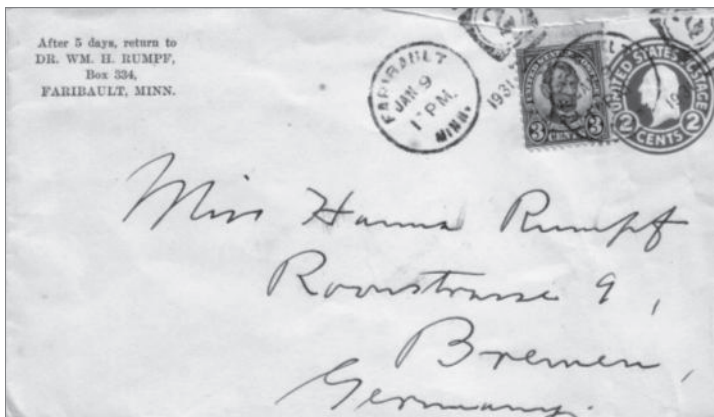 After 5 days, return to
DR. WM. H. RUMPF,
Box 334,
FARIBAULT, MINN.
FARIBAULT
JAN 9
1 PM.
MINN.
1931
3 CENTS 3
UNITED STATES POSTAGE
2 CENTS 2
Miss Hanna Rumpf
Roonstrasse 9,
Bremen,
Germany.